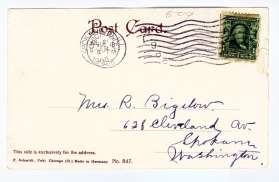 500
Post Card.
Mrs. R. Bigelow
628 Cleveland Av
Spokane
Washington.
This side is exclusively for the address.
F. Schmidt, Publ. Chicago (Ill.) Made in Germany No. 847.